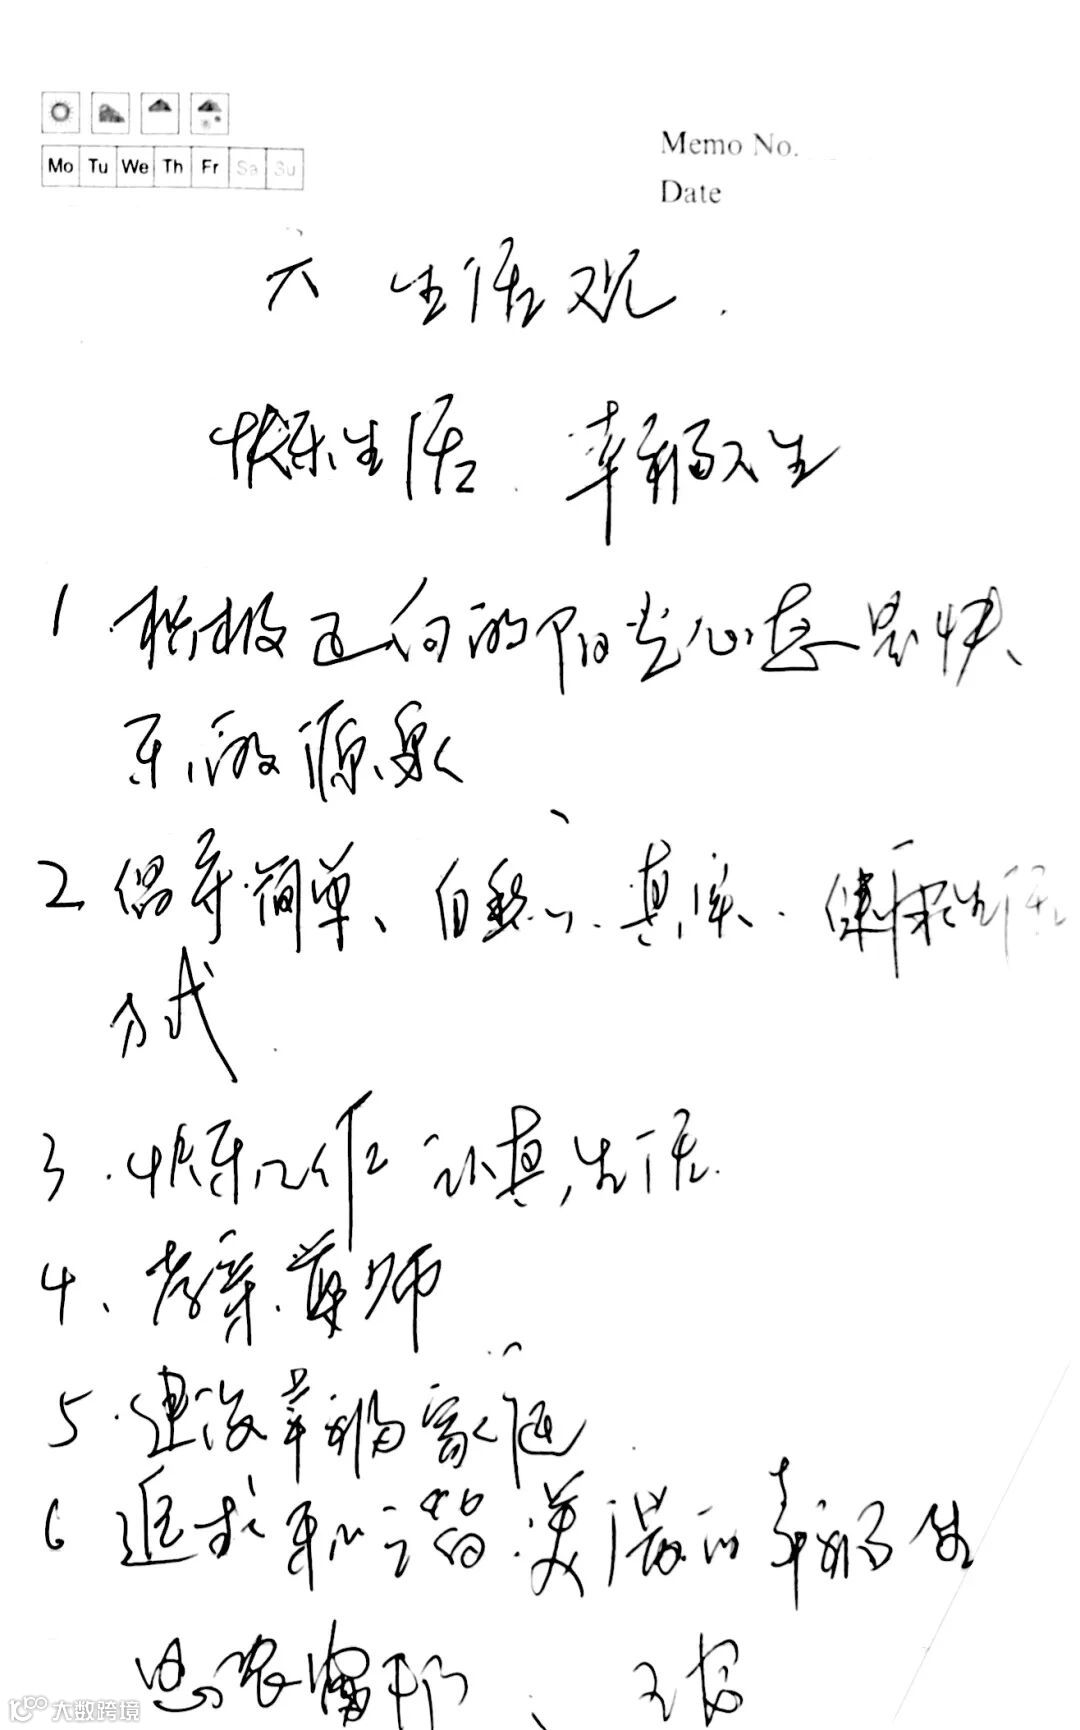 Mo Tu We Th Fr Sa Su
Memo No.
Date
六 生活观.
快乐生活 幸福人生
1 积极正向的阳光心态是快
乐的源泉
2 倡导简单、自然、真实、健康生活
方式
3.快乐工作 认真生活.
4、孝亲.尊师
5.建设幸福家庭
6 追求和谐.美满的幸福生
惠农富邦、王
100 大数跨境